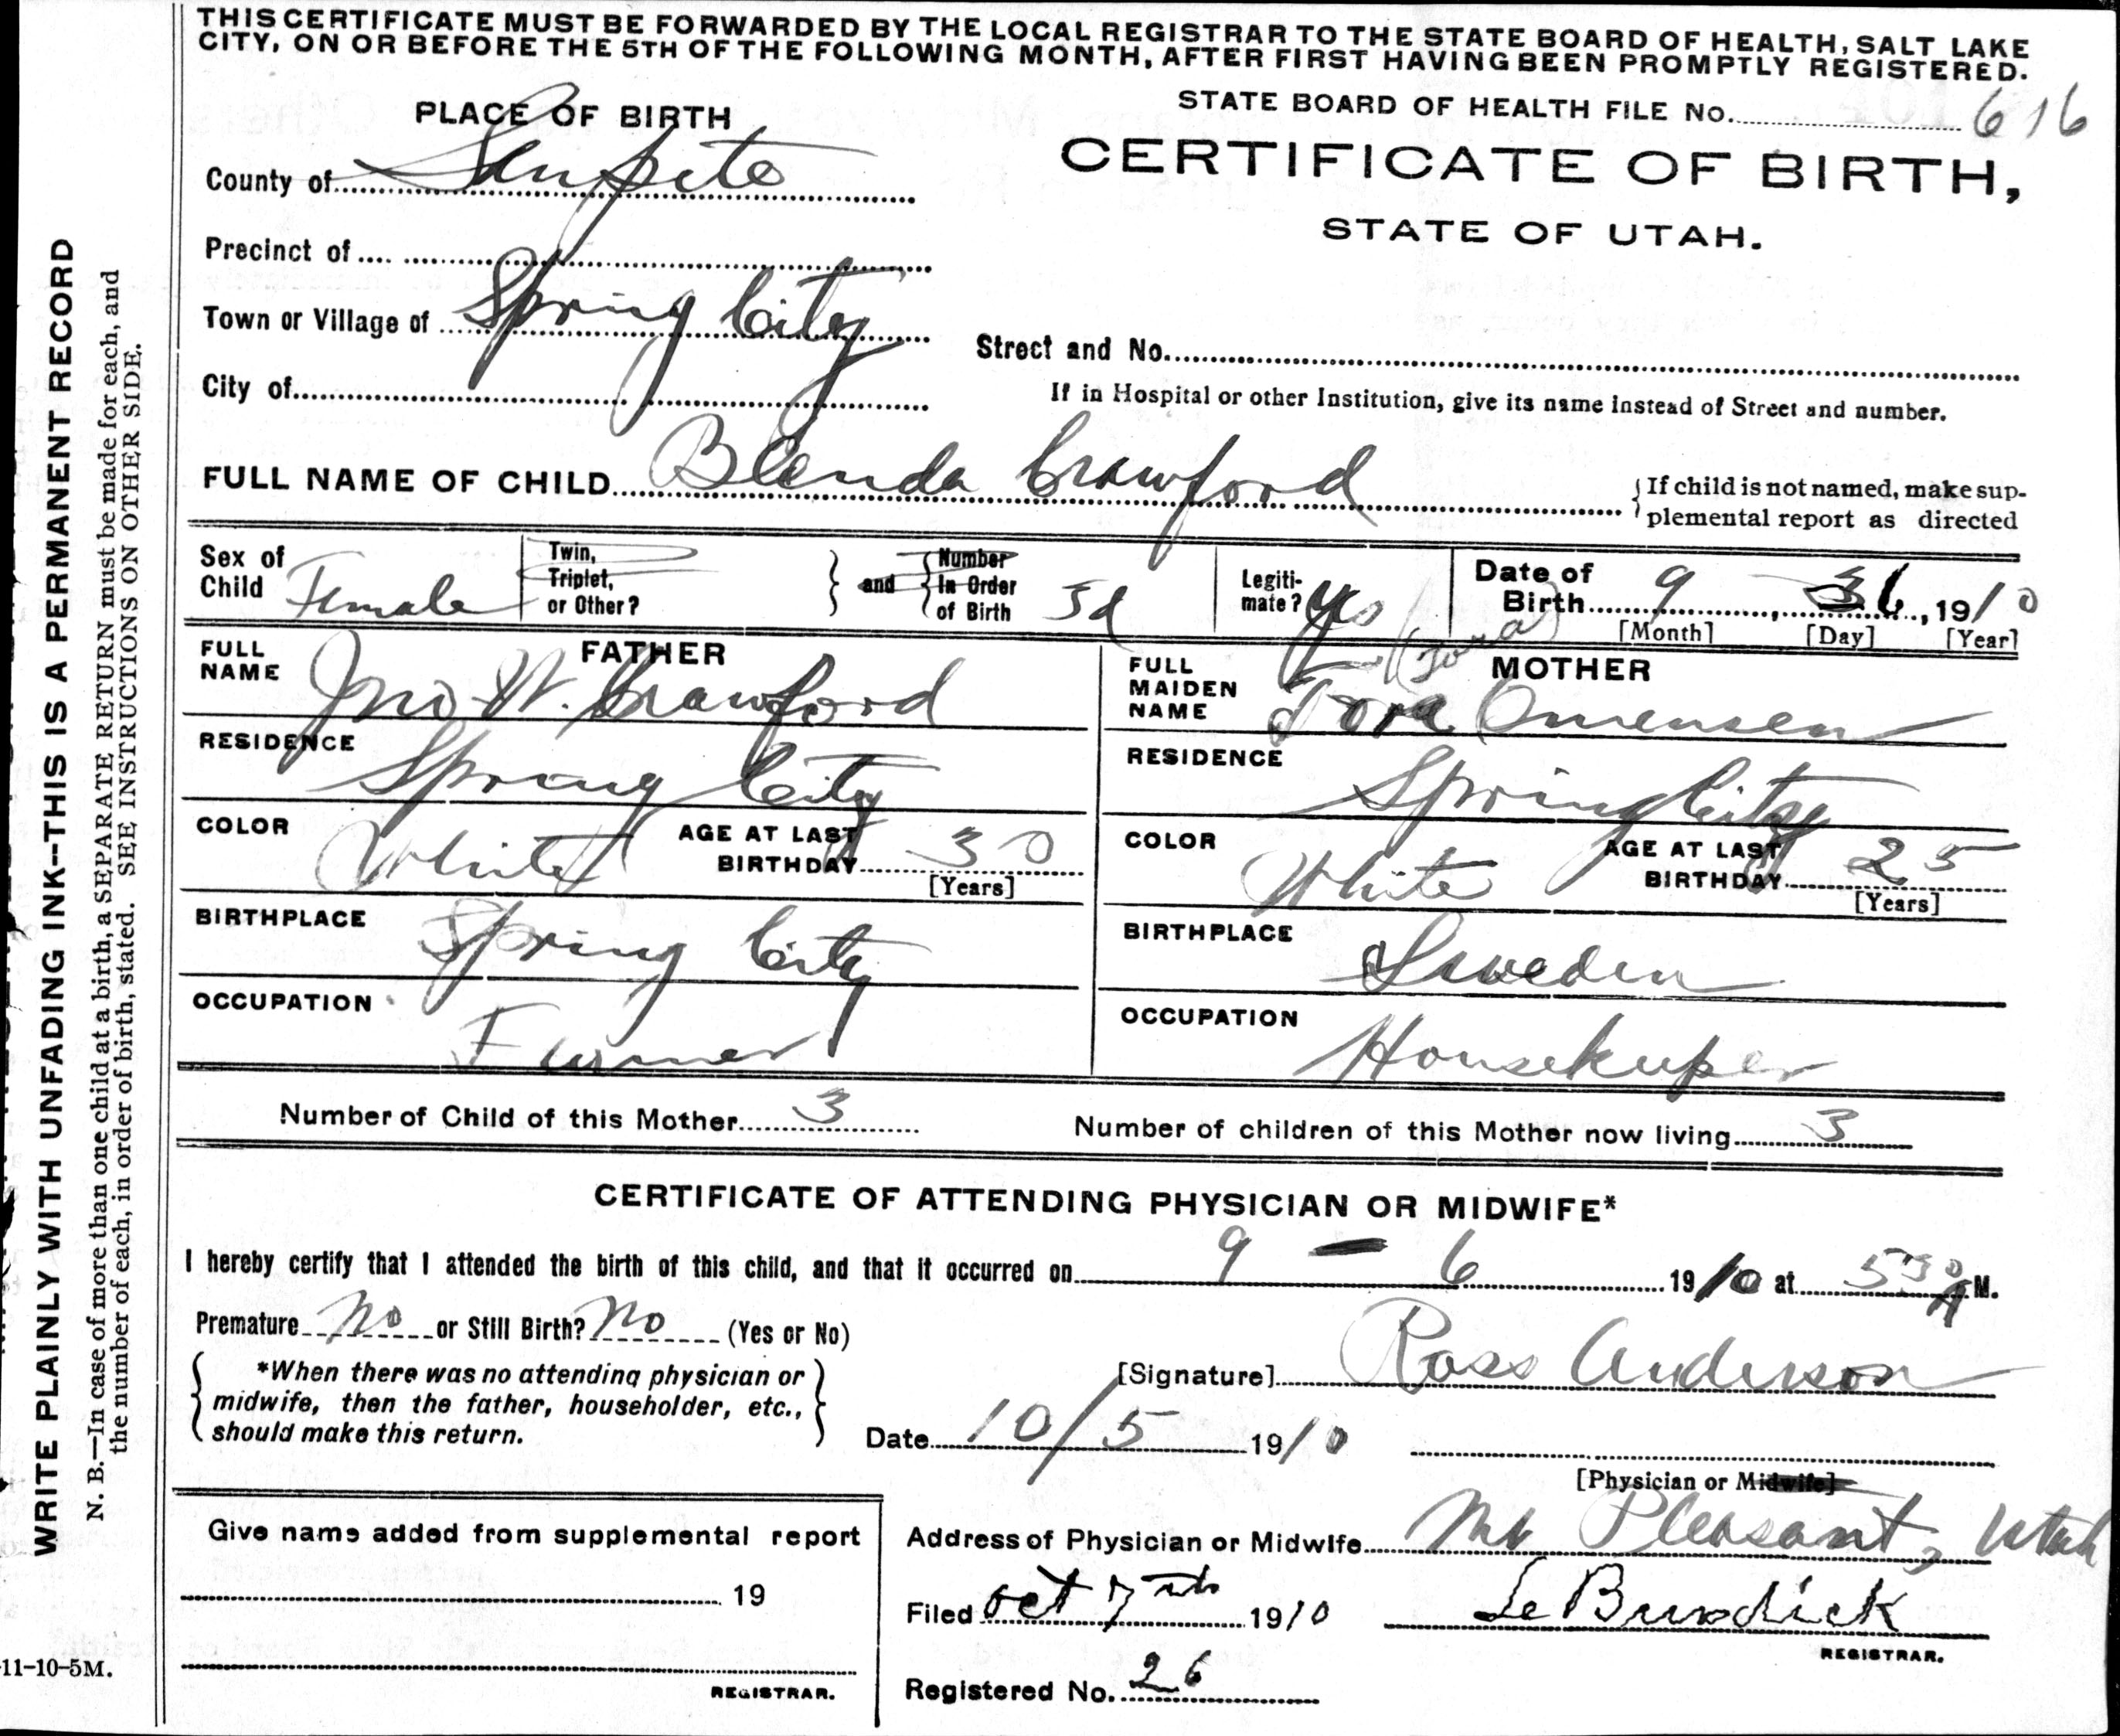 THIS CERTIFICATE MUST BE FORWARDED BY THE LOCAL REGISTRAR TO THE STATE BOARD OF HEALTH, SALT LAKE
CITY, ON OR BEFORE THE 5TH OF THE FOLLOWING MONTH, AFTER FIRST HAVING BEEN PROMPTLY REGISTERED.
WRITE PLAINLY WITH UNFADING INK--THIS IS A PERMANENT RECORD
N. B.—In case of more than one child at a birth, a SEPARATE RETURN must be made for each, and
the number of each, in order of birth, stated. SEE INSTRUCTIONS ON OTHER SIDE.
STATE BOARD OF HEALTH FILE No. 616
PLACE OF BIRTH
CERTIFICATE OF BIRTH,
STATE OF UTAH.
County of Sanpete
Precinct of
Town or Village of Spring City
Street and No.
City of
If in Hospital or other Institution, give its name instead of Street and number.
FULL NAME OF CHILD Blenda Crawford
If child is not named, make sup-
plemental report as directed
Sex of Child Female
Twin, Triplet, or Other?
and
Number In Order of Birth 3d
Legiti-mate? Yes
Date of Birth 9 6, 1910
[Month] [Day] [Year]
FATHER
FULL NAME Jno W. Crawford
RESIDENCE Spring City
COLOR White AGE AT LAST BIRTHDAY 30
[Years]
BIRTHPLACE Spring City
OCCUPATION Farmer
MOTHER
FULL MAIDEN NAME Tora
RESIDENCE Spring City
COLOR White AGE AT LAST BIRTHDAY 25
[Years]
BIRTHPLACE Sweden
OCCUPATION Housekeeper
Number of Child of this Mother 3
Number of children of this Mother now living 3
CERTIFICATE OF ATTENDING PHYSICIAN OR MIDWIFE*
I hereby certify that I attended the birth of this child, and that it occurred on 9 - 6 1910 at 530 A M.
Premature no or Still Birth? no (Yes or No)
*When there was no attending physician or
midwife, then the father, householder, etc.,
should make this return.
[Signature] Ross Anderson
Date 10/5 1910
[Physician or Midwife]
Give name added from supplemental report
19
REGISTRAR.
Address of Physician or Midwife Mt Pleasant, Utah
Filed Oct 7th 1910
Burdick
REGISTRAR.
Registered No. 26
11-10-5M.